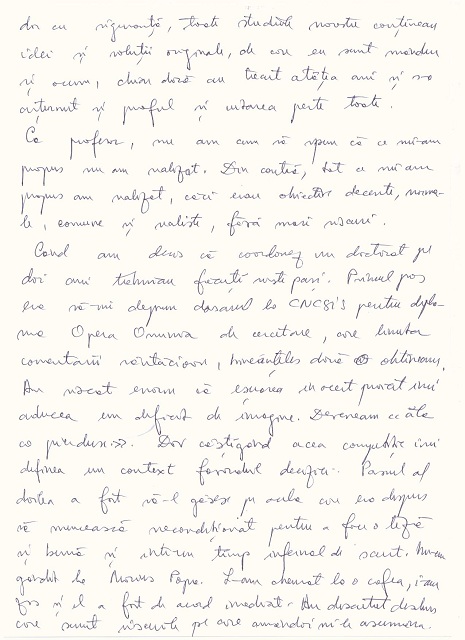 dar cu siguranță, toate studiile noastre conțineau
idei și soluții originale, de care eu sunt mândru
și acum, chiar dacă au trecut atâția ani și s-a
așternut și praful și uitarea peste toate.
Ca profesor, nu am cum să spun că ce mi-am
propus nu am realizat. Din contră, tot ce mi-am
propus am realizat, căci erau obiective decente, norma-
le, comune și realiste, fără mari riscuri.
Când am decis să coordonez un doctorat pe
doi ani trebuiau făcuți niște pași. Primul pas
era să-mi depun dosarul la CNCSIS pentru diplo-
ma Opera Omnia de cercetare, care
comentarii răutăcioase, bineînțeles dacă o obțineam.
Au enorm că eșuarea în acest punct îmi
aducea un deficit de imagine. Deveneam ce ăla
ce pierduse. Dar câștigând acea competiție îmi
definea un context favorabil deciziei. Pasul al
doilea a fost să-l găsesc pe acela care era dispus
să muncească necondiționat pentru a face o teză
și bună și într-un timp infernal de scurt. M-am
gândit la Marius Popa. L-am chemat la o cafea, i-am
zis și el a fost de acord imediat. Am discutat deschis
care sunt riscurile pe care amândoi ni le asumam.